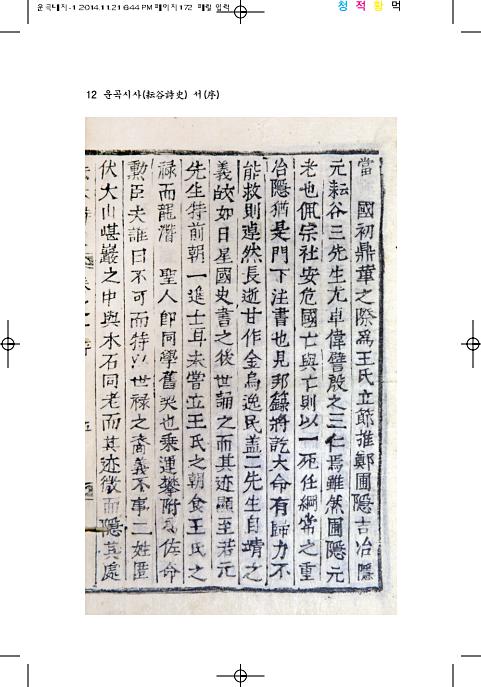 운곡대지-1 2014.11.21 6:44 PM 페이지172 매킬 입력
청 적 황 먹
12 운곡시사(耘谷詩史) 서(序)
當 國初鼎革之際爲王氏立節推鄭圃隱吉冶隱
元耘谷三先生尤卓偉譬殷之三仁焉雖然圃隱元
老也佩宗社安危國亡與亡則以一死任綱常之重
冶隱猶是門下注書也見邦籙將訖大命有歸力不
能救則遯然長逝甘作金烏逸民盖二先生自靖之
義皎如日星國史書之後世誦之而其迹顯至若元
先生特前朝一進士耳未嘗立王氏之朝食王氏之
祿而龍潛 聖人卽同學舊契也乘運攀附爲佐命
勳臣夫誰曰不可而特以世祿之裔義不事二姓匿
伏大山堪巖之中與木石同老而其迹微而隱其處